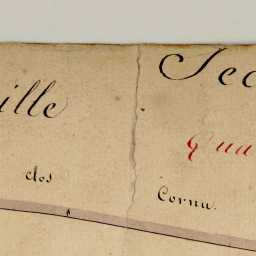 ille Sec
Qua
clos Cornu.